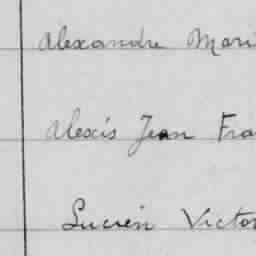 Alexandre Mari
Alexis Jean Fra
Lucien Victo